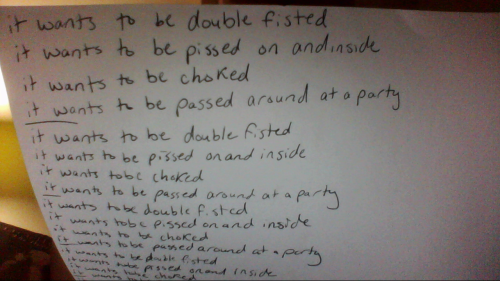 it wants to be double fisted
it wants to be pissed on and inside
it wants to be choked
it wants to be passed around at a party
it wants to be double fisted
it wants to be pissed on and inside
it wants to be choked
it wants to be passed around at a party
it wants to be double fisted
it wants to be pissed on and inside
it wants to be choked
it wants to be passed around at a party
it wants to be double fisted
it wants to be pissed on and inside
it wants to be choked